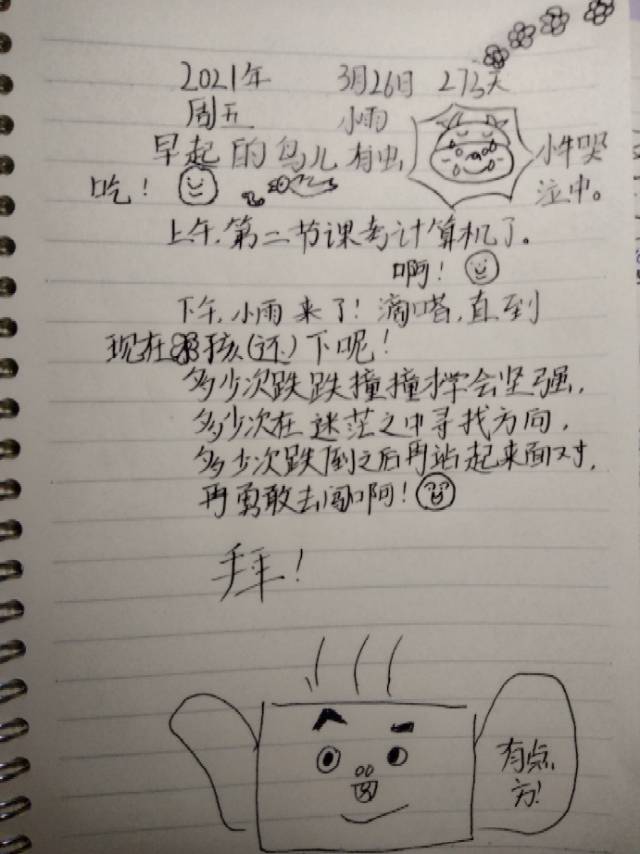 2021年 3月26日 273天
周五 小雨
早起的鸟儿有虫
吃！
小牛哭
泣中。
上午,第二节课考计算机了。
啊！
下午,小雨来了！滴嗒,直到
现在孩(还)下呢！
多少次跌跌撞撞才学会坚强,
多少次在迷茫之中寻找方向,
多少次跌倒之后再站起来面对,
再勇敢去闯啊！
有点,
方!